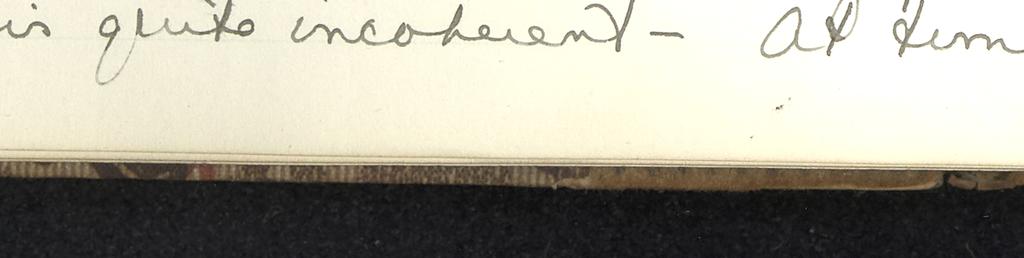 is quite incoherent - At tim